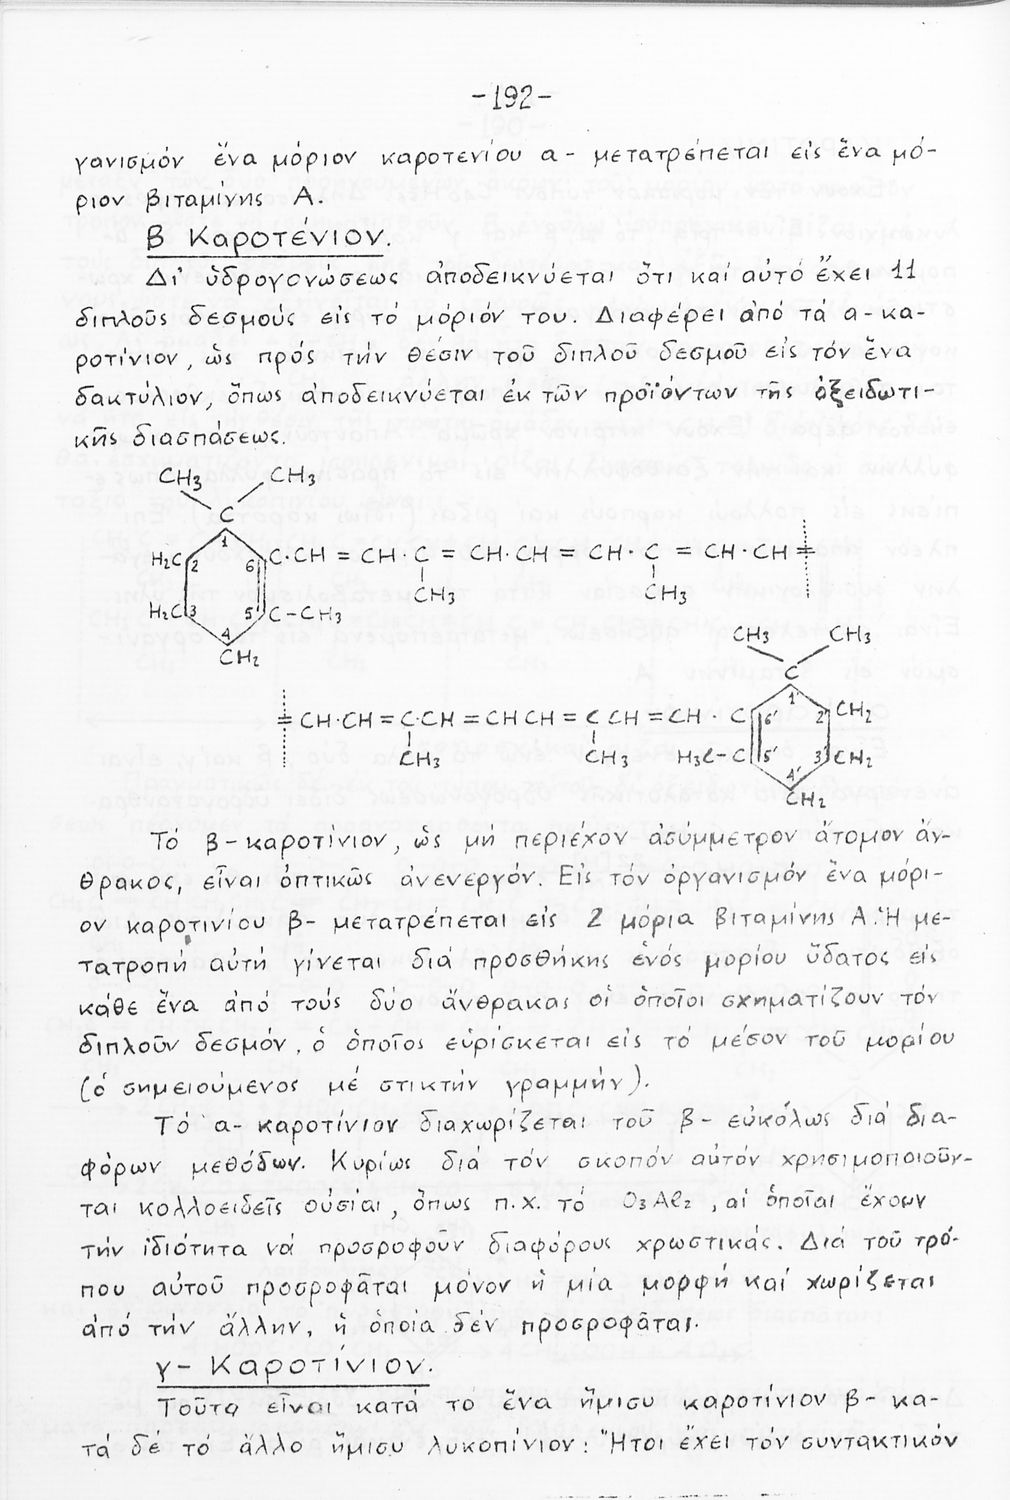 -192-
γανισμόν ἕνα μόριον καροτενίου α- μετατρέπεται εἰς ἕνα μό-
ριον βιταμίνης Α.
β Καροτένιον.
Δι' ὑδρογονώσεως ἀποδεικνύεται ὅτι καί αὐτό ἔχει 11
διπλοῦς δεσμούς εἰς τό μόριόν του. Διαφέρει ἀπό τά α-κα-
ροτίνιον, ὡς πρός τήν θέσιν τοῦ διπλοῦ δεσμοῦ εἰς τόν ἕνα
δακτύλιον, ὅπως ἀποδεικνύεται ἐκ τῶν προϊόντων τῆς ὀξειδωτι-
κῆς διασπάσεως.
CH3 CH3
C
1
H2C 2 6 C·CH = CH·C = CH·CH = CH·C = CH·CH =
CH3 CH3
H2C 3 5 C-CH3
4
CH2
CH3 CH3
C
= CH·CH = C·CH = CH CH = C CH = CH · C 6' 1' 2' CH2
CH3 CH3 H3C-C 5' 3' CH2
4'
CH2
Τό β-καροτίνιον, ὡς μή περιέχον ἀσύμμετρον ἄτομον ἄν-
θρακος, εἶναι ὀπτικῶς ἀνενεργόν. Εἰς τόν ὀργανισμόν ἕνα μόρι-
ον καροτινίου β- μετατρέπεται εἰς 2 μόρια βιταμίνης Α. Ἡ με-
τατροπή αὐτή γίνεται διά προσθήκης ἑνός μορίου ὕδατος εἰς
κάθε ἕνα ἀπό τούς δύο ἄνθρακας οἱ ὁποῖοι σχηματίζουν τόν
διπλοῦν δεσμόν, ὁ ὁποῖος εὑρίσκεται εἰς τό μέσον τοῦ μορίου
(ὁ σημειούμενος μέ στικτήν γραμμήν).
Τό α- καροτίνιον διαχωρίζεται τοῦ β- εὐκόλως διά δια-
φόρων μεθόδων. Κυρίως διά τόν σκοπόν αὐτόν χρησιμοποιοῦν-
ται κολλοειδεῖς οὐσίαι, ὅπως π.χ. τό O3Al2, αἱ ὁποῖαι ἔχουν
τήν ἰδιότητα νά προσροφοῦν διαφόρους χρωστικάς. Διά τοῦ τρό-
που αὐτοῦ προσροφᾶται μόνον ἡ μία μορφή καί χωρίζεται
ἀπό τήν ἄλλην, ἡ ὁποία δέν προσροφᾶται.
γ- Καροτίνιον.
Τοῦτο εἶναι κατά τό ἕνα ἥμισυ καροτίνιον β- κα-
τά δέ τό ἄλλο ἥμισυ λυκοπίνιον: Ἤτοι ἔχει τόν συντακτικόν